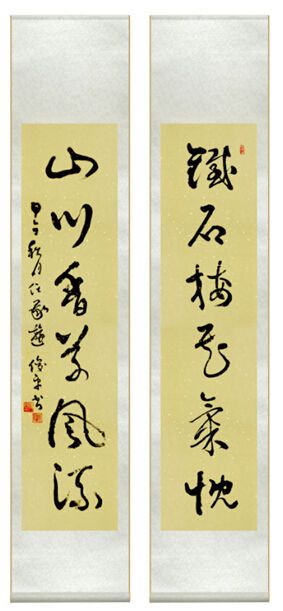 鐵石梅花氣概
山川香草風流
甲午秋月